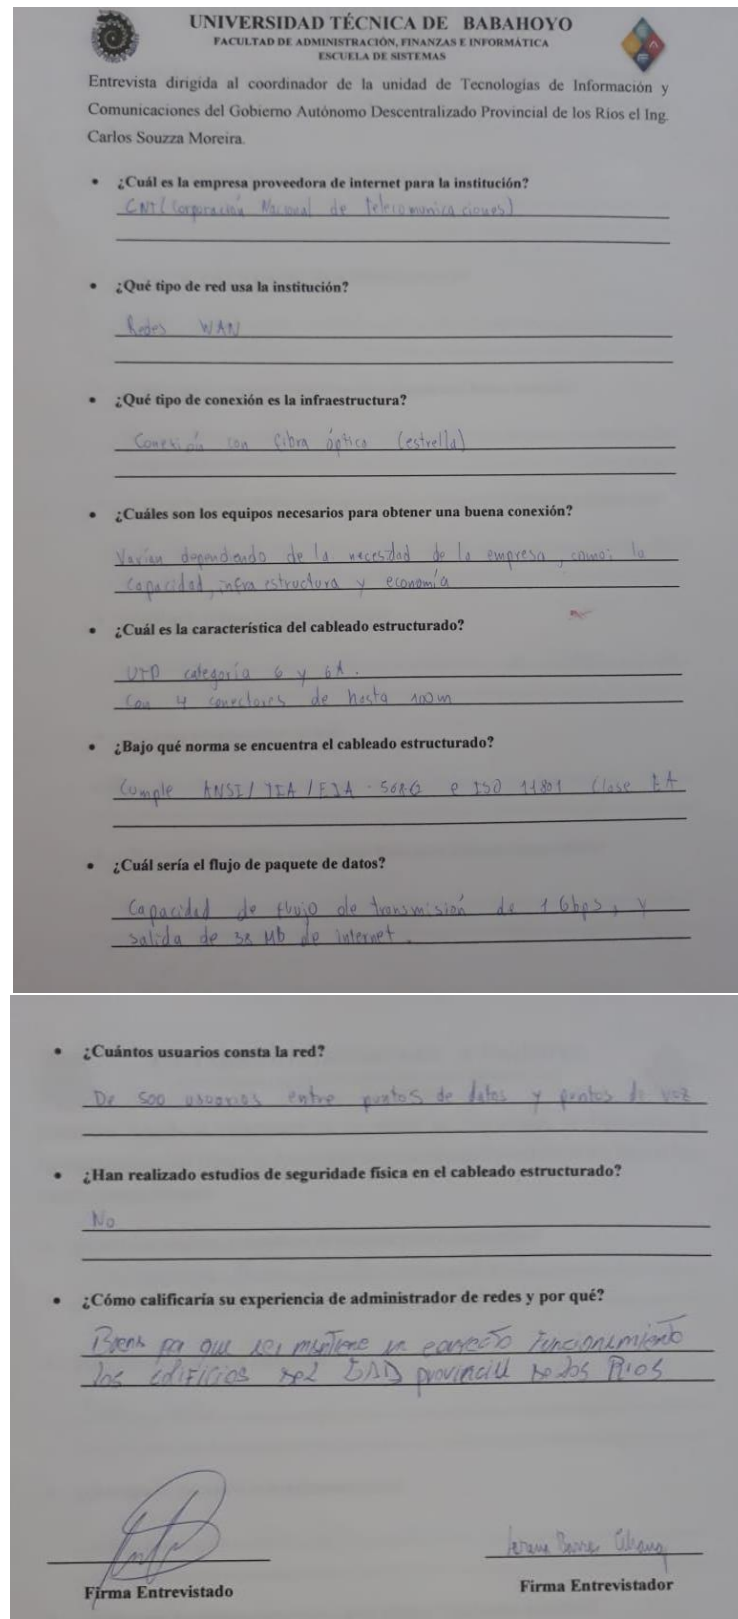 UNIVERSIDAD TÉCNICA DE BABAHOYO
FACULTAD DE ADMINISTRACIÓN, FINANZAS E INFORMÁTICA
ESCUELA DE SISTEMAS
Entrevista dirigida al coordinador de la unidad de Tecnologías de Información y
Comunicaciones del Gobierno Autónomo Descentralizado Provincial de los Ríos el Ing.
Carlos Souzza Moreira.
• ¿Cuál es la empresa proveedora de internet para la institución?
CNT (Corporación Nacional de Telecomunicaciones)
• ¿Qué tipo de red usa la institución?
Redes WAN
• ¿Qué tipo de conexión es la infraestructura?
Conexión con fibra óptica (estrella)
• ¿Cuáles son los equipos necesarios para obtener una buena conexión?
Varían dependiendo de la necesidad de la empresa, como: la
capacidad, infraestructura y economía
• ¿Cuál es la característica del cableado estructurado?
UTP categoría 6 y 6A.
Con 4 conectores de hasta 100m
• ¿Bajo qué norma se encuentra el cableado estructurado?
Cumple ANSI/TIA/EIA - e ISO 11801 Clase EA
• ¿Cuál sería el flujo de paquete de datos?
Capacidad de flujo de transmisión de 1 Gbps, y
salida de 38 Mb de internet.
• ¿Cuántos usuarios consta la red?
De 500 usuarios entre puntos de datos y puntos de voz
• ¿Han realizado estudios de seguridade física en el cableado estructurado?
No
• ¿Cómo calificaría su experiencia de administrador de redes y por qué?
que mantiene un correcto funcionamiento
los edificios del GAD provincial de los Rios
Firma Entrevistado
Firma Entrevistador